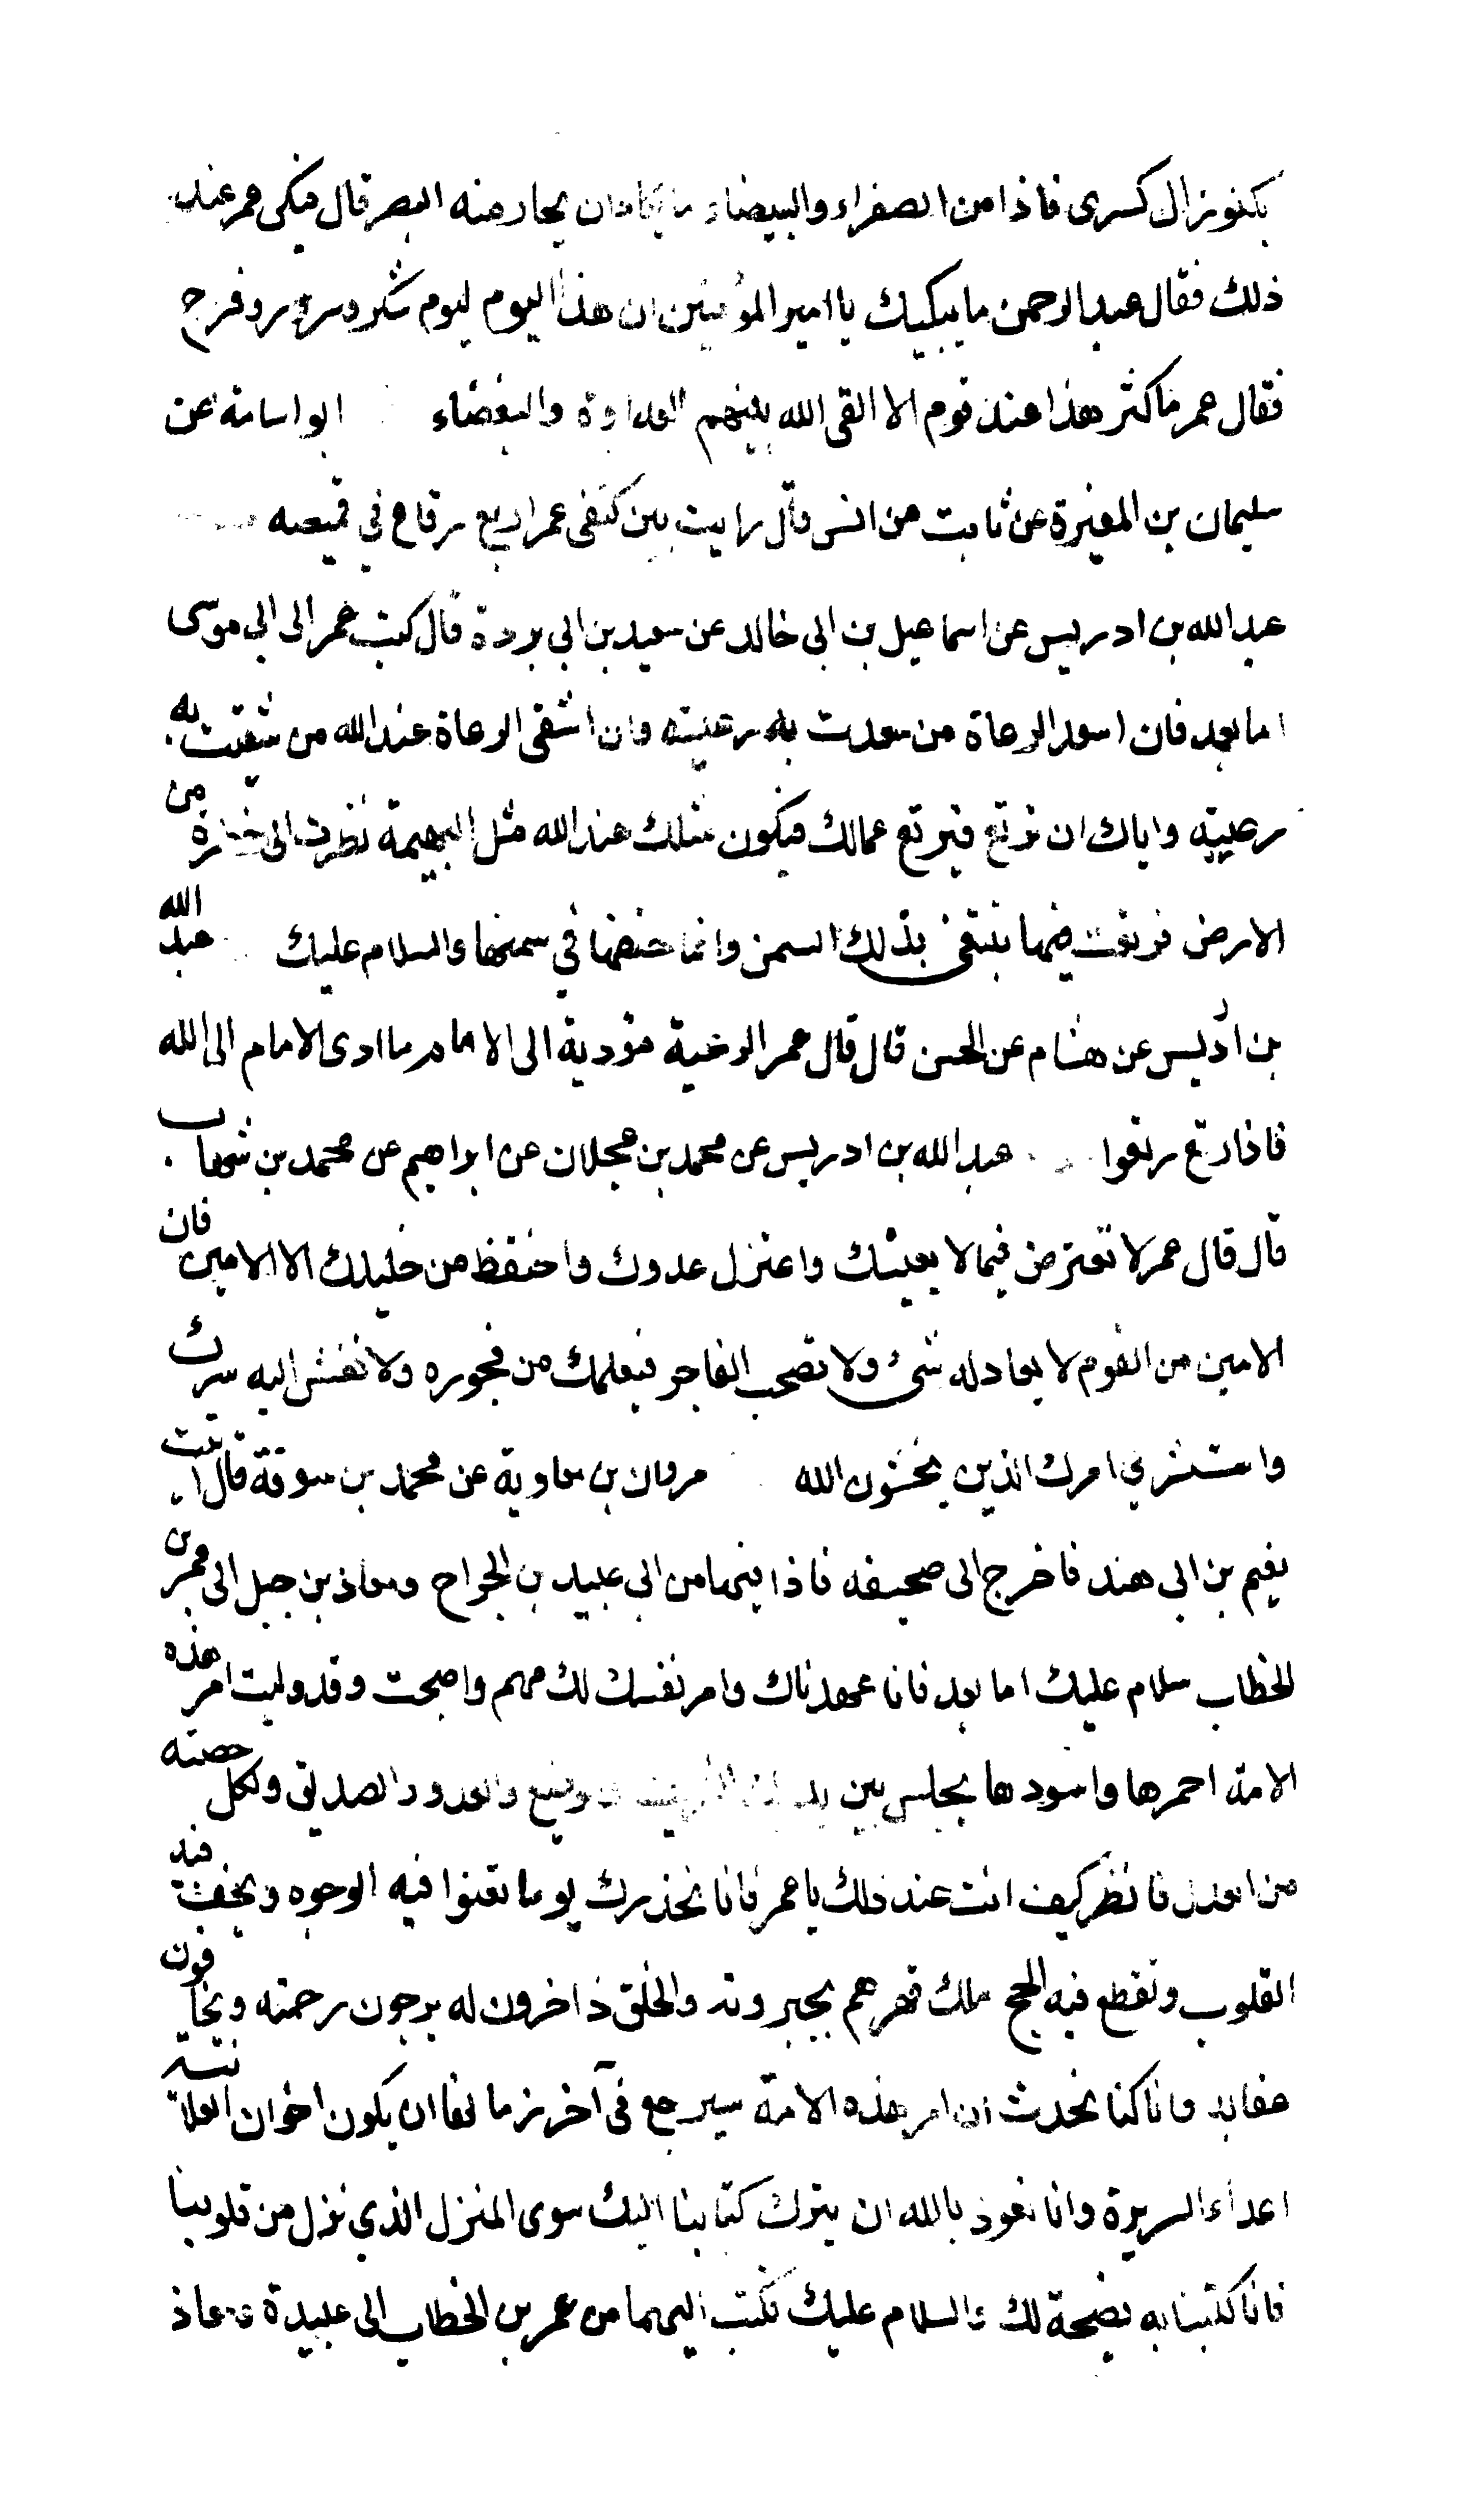 بكنوز ال كسرى فاذا من الصفراء والبيضاء ما يكاد ان يحار منه البصر قال فبكى عمر عند
ذلك فقال عبد الرحمن ما يبكيك يا امير المؤمنين ان هذا اليوم ليوم شكر وسرور وفرح
فقال عمر ما كثر هذا عند قوم الا القى الله بينهم العداوة والبغضاء ابو اسامة عن
سليمان بن المغيرة عن ثابت عن انس قال رايت بين كتفى عمر اربع رقاع في قميصه
عبد الله بن ادريس عن اسماعيل بن ابى خالد عن سعيد بن ابي بردة قال كتب عمر الى ابي موسى
اما بعد فان اسعد الرعاة من سعدت به رعيته وان اشقى الرعاة عند الله من شقيت به
رعيته واياك ان ترتع فيرتع عمالك فيكون مثلك عند الله مثل البهيمة نظرت الى خضرة من
الارض فرتعت فيها تبتغى بذلك السمن وانما حتفها في سمنها والسلام عليك عبد الله
بن ادريس عن هشام عن الحسن قال قال عمر الرعية مؤدية الى الامام ما ادى الامام الى الله
فاذا رتع رتعوا عبد الله بن ادريس عن محمد بن عجلان عن ابراهيم عن محمد بن شهاب
قال قال عمر لا تعترض فيما لا يعنيك واعتزل عدوك واحتفظ من خليلك الا الامين فان
الامين من القوم لا يعادله شئ ولا تصحب الفاجر فيعلمك من فجوره ولا تفش اليه سرك
واستشر في امرك الذين يخشون الله مروان بن معاوية عن محمد بن سوقة قال اتيت
نعيم بن ابي هند فاخرج الى صحيفة فاذا فيها من ابي عبيدة بن الجراح ومعاذ بن جبل الى عمر بن
الخطاب سلام عليك اما بعد فانا عهدناك وامر نفسك لك مهم واصبحت وقد وليت امر هذه
الامة احمرها واسودها يجلس بين يديك الشريف والوضيع والعدو والصديق ولكل حصته
من العدل فانظر كيف انت عند ذلك يا عمر فانا نحذرك يوما تعنوا فيه الوجوه وتجف فيه
القلوب وتقطع فيه الحجج ملك قهرهم بجبروته والخلق داخرون له يرجون رحمته ويخافون
عقابه وانا كنا نحدث ان امر هذه الامة سيرجع في آخر زمانها ان يكون اخوان العلانية
اعداء السريرة وانا نعوذ بالله ان ينزل كتابنا اليك سوى المنزل الذي نزل من قلوبنا
فانا كتبنا به نصيحة لك والسلام عليك فكتب اليهما من عمر بن الخطاب الى عبيدة ومعاذ